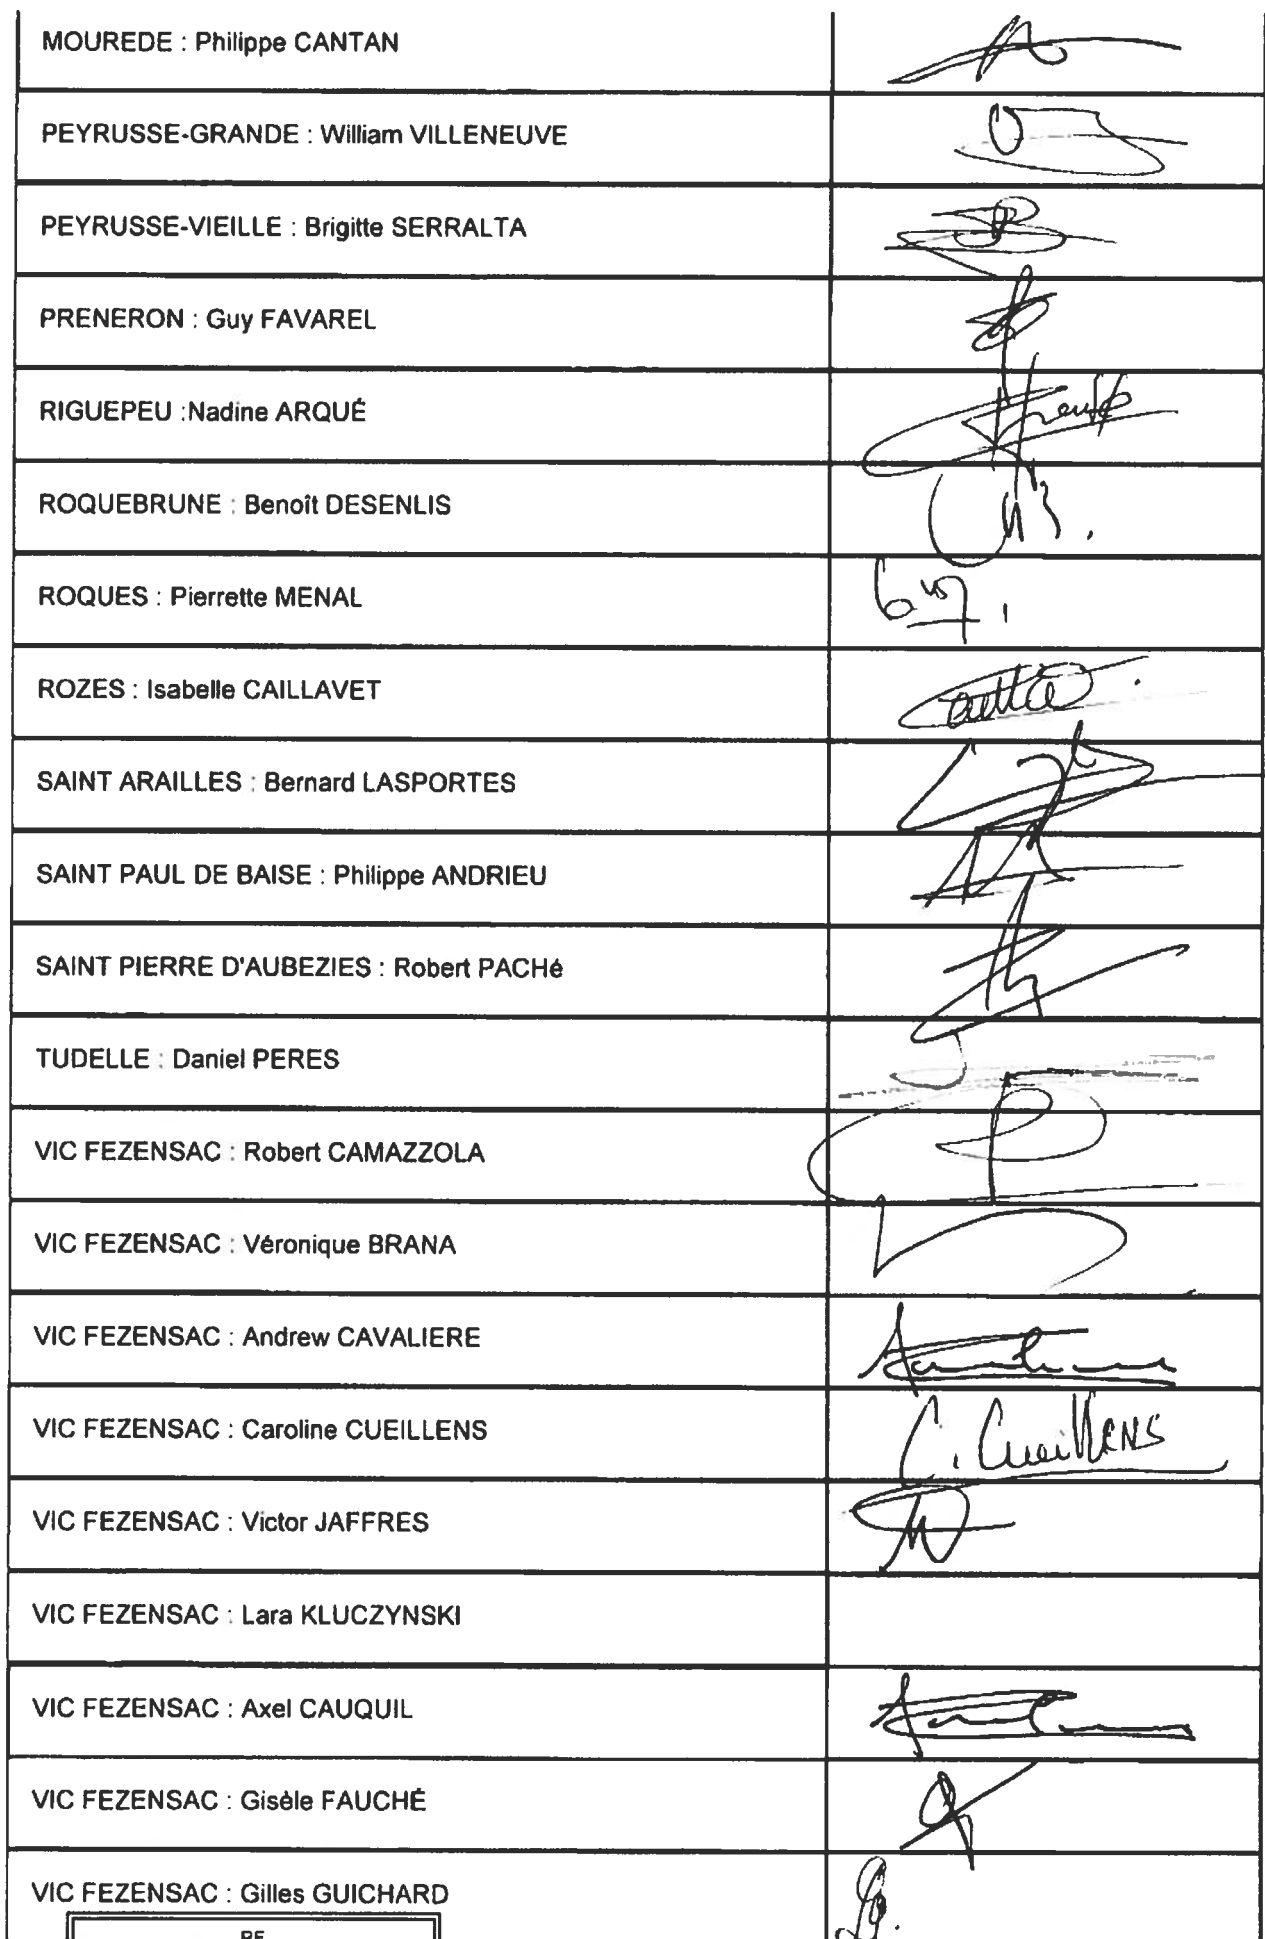 MOUREDE : Philippe CANTAN
PEYRUSSE-GRANDE : William VILLENEUVE
PEYRUSSE-VIEILLE : Brigitte SERRALTA
PRENERON : Guy FAVAREL
RIGUEPEU :Nadine ARQUÉ
ROQUEBRUNE : Benoît DESENLIS
ROQUES : Pierrette MENAL
ROZES : Isabelle CAILLAVET
SAINT ARAILLES : Bernard LASPORTES
SAINT PAUL DE BAISE : Philippe ANDRIEU
SAINT PIERRE D'AUBEZIES : Robert PACHé
TUDELLE : Daniel PERES
VIC FEZENSAC : Robert CAMAZZOLA
VIC FEZENSAC : Véronique BRANA
VIC FEZENSAC : Andrew CAVALIERE
VIC FEZENSAC : Caroline CUEILLENS C. CueillENS
VIC FEZENSAC : Victor JAFFRES
VIC FEZENSAC : Lara KLUCZYNSKI
VIC FEZENSAC : Axel CAUQUIL
VIC FEZENSAC : Gisèle FAUCHÉ
VIC FEZENSAC : Gilles GUICHARD